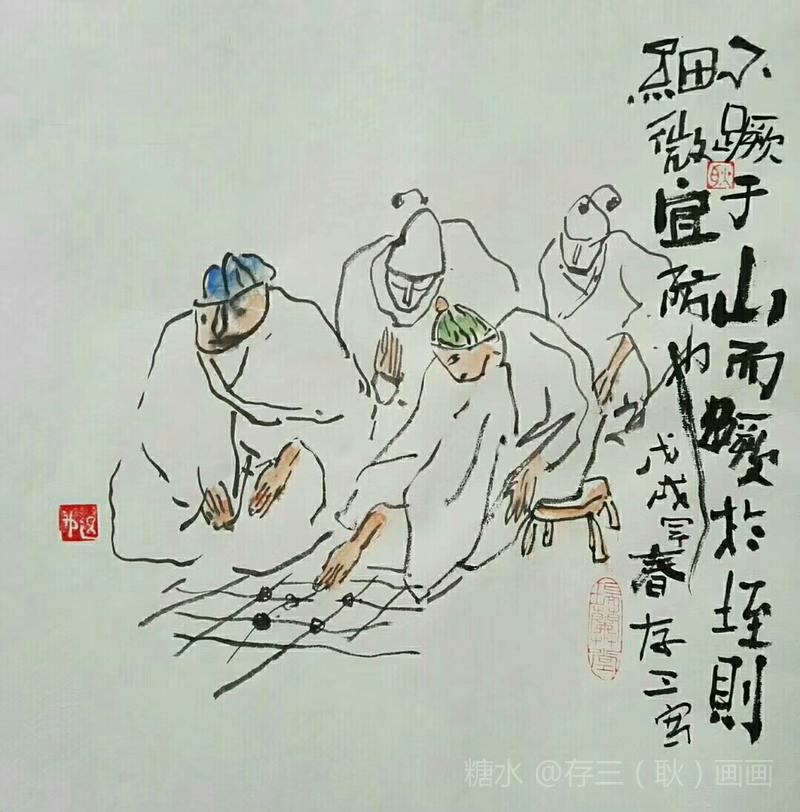 不蹶于山而蹶於垤則
細微宜防也
戊戌年春存三写
耿
糖水 @存三（耿）画画